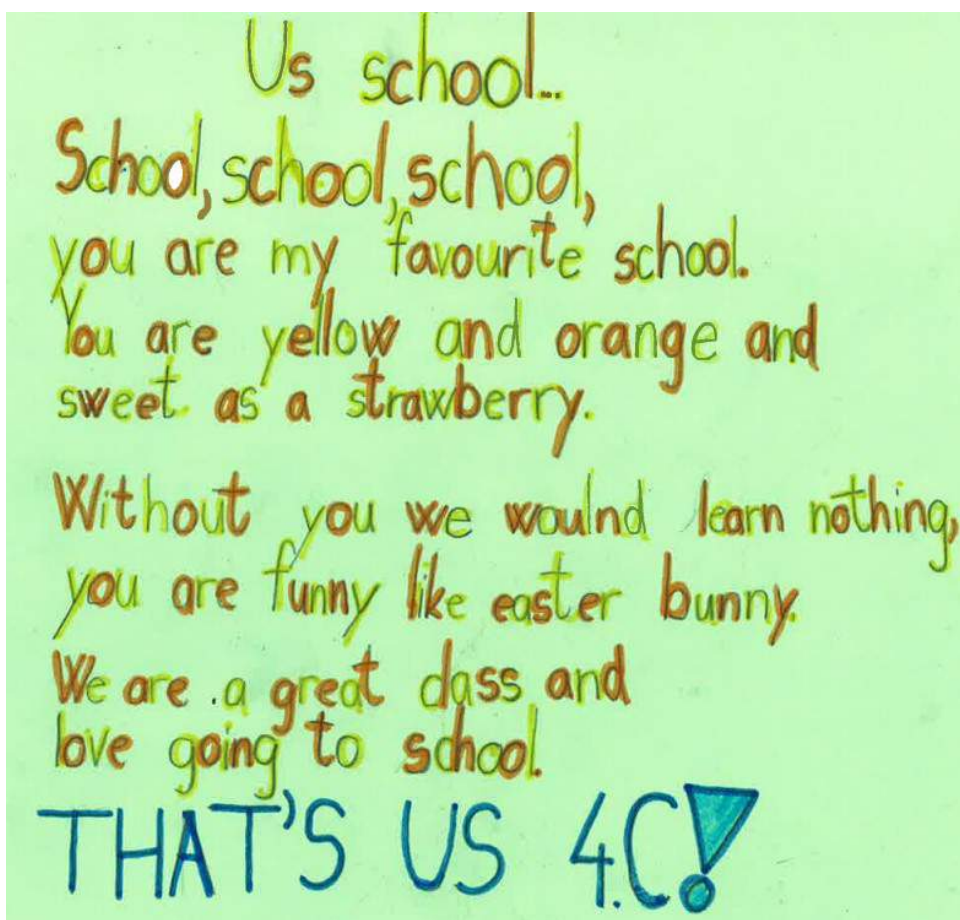 Us school...
School, school, school,
you are my favourite school.
You are yellow and orange and
sweet as a strawberry.
Without you we woulnd learn nothing,
you are funny like easter bunny.
We are a great class and
love going to school.
THAT'S US 4.C!